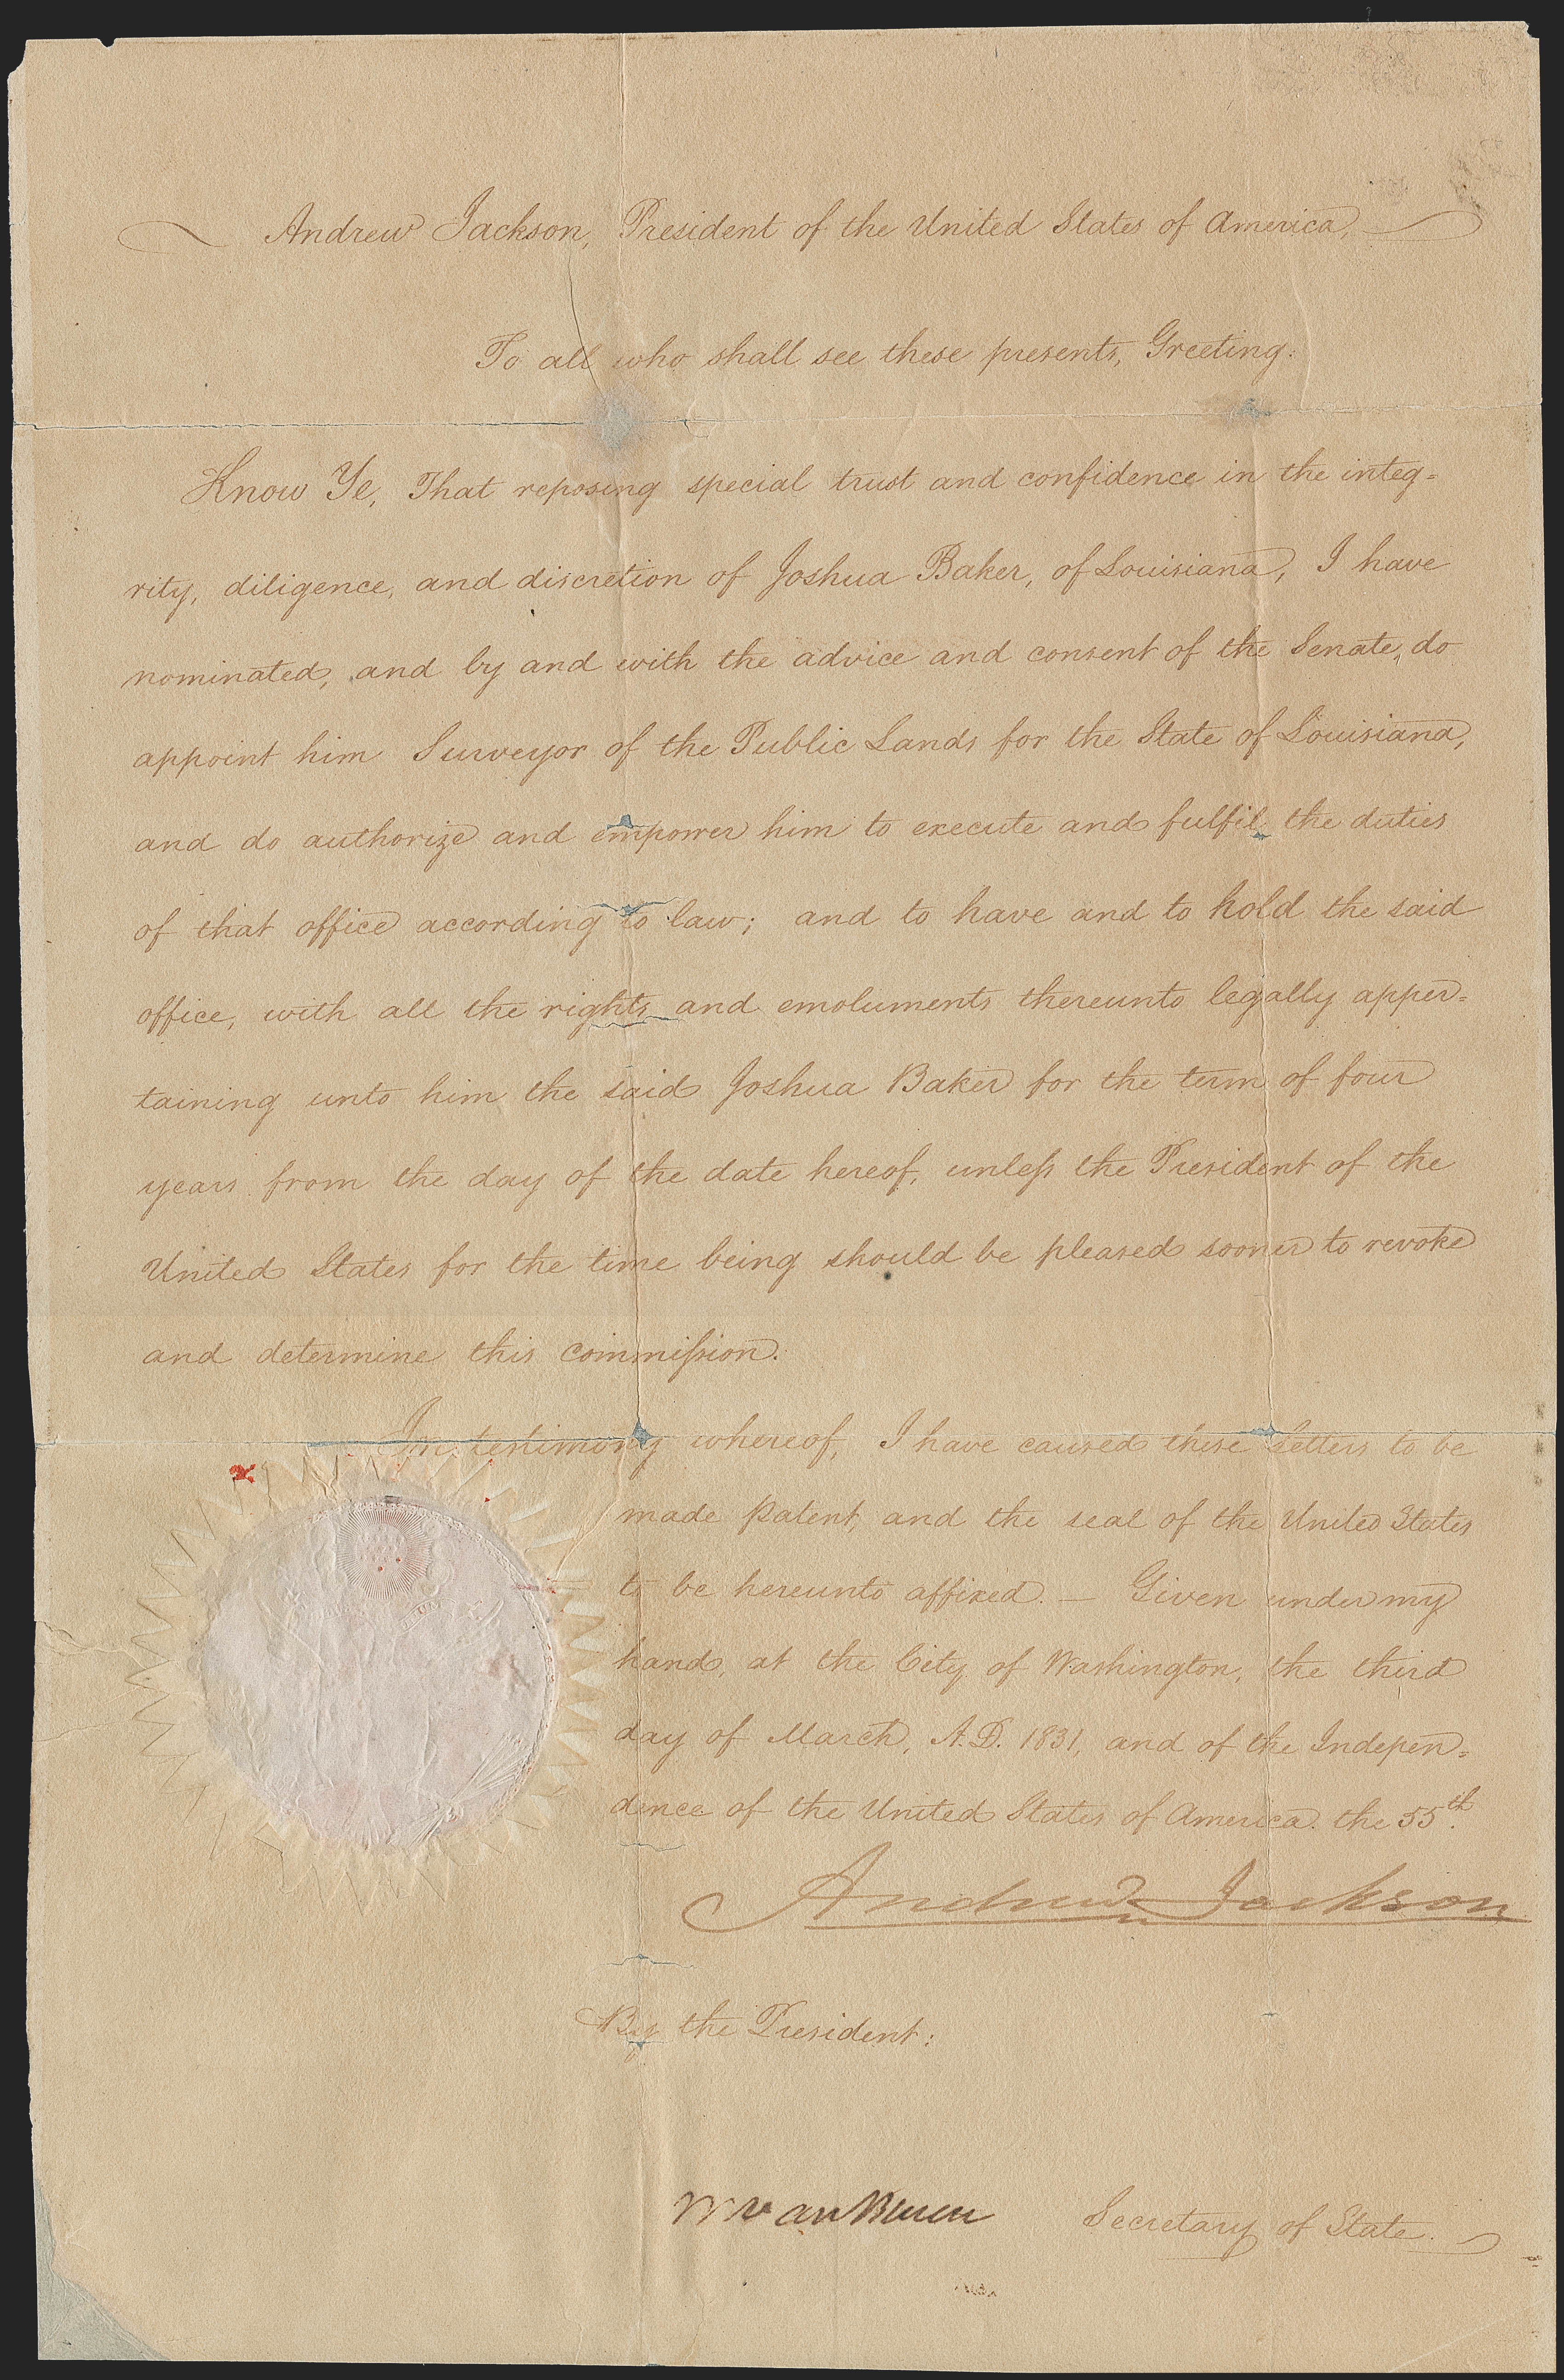 Andrew Jackson, President of the United States of America,
To all who shall see these presents, Greeting:
Know Ye, That reposing special trust and confidence in the integ=
rity, diligence, and discretion of Joshua Baker, of Louisiana, I have
nominated, and by and with the advice and consent of the Senate, do
appoint him Surveyor of the Public Lands for the State of Louisiana,
and do authorize and empower him to execute and fulfil the duties
of that office according to law; and to have and to hold the said
office, with all the rights and emoluments thereunto legally apper=
taining unto him the said Joshua Baker for the term of four
years from the day of the date hereof, unleſs the President of the
United States for the time being should be pleased sooner to revoke
and determine this commiſsion.
In testimony whereof, I have caused these Letters to be
made patent, and the seal of the United States
to be hereunto affixed. — Given under my
hand, at the City of Washington, the third
day of March, A.D. 1831, and of the Indepen=
dence of the United States of America. the 55th.
Andrew Jackson
By the President:
M Van Buren Secretary of State.